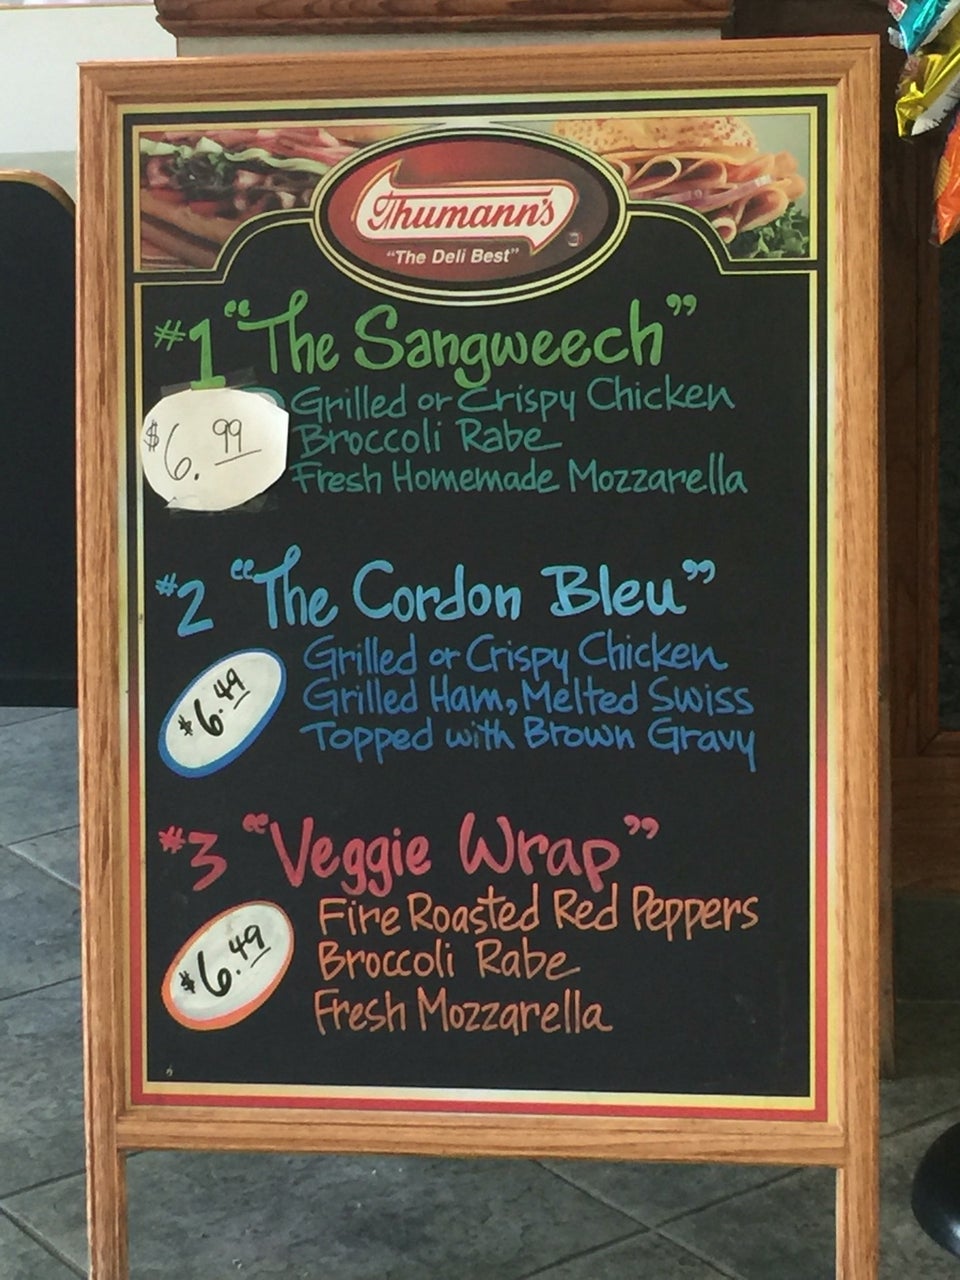 Thumann's
"The Deli Best"
#1 "The Sangweech"
Grilled or Crispy Chicken
$6.99
Broccoli Rabe
Fresh Homemade Mozzarella
#2 "The Cordon Bleu"
Grilled or Crispy Chicken
$6.49
Grilled Ham, Melted Swiss
Topped with Brown Gravy
#3 "Veggie Wrap"
Fire Roasted Red Peppers
$6.49
Broccoli Rabe
Fresh Mozzarella